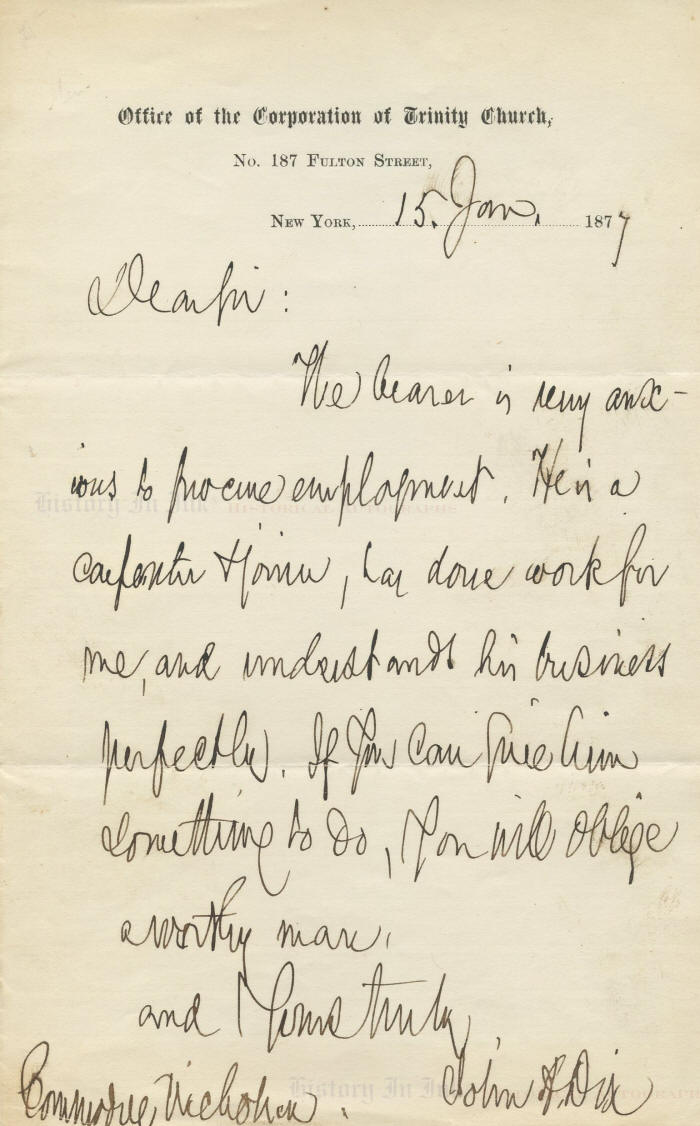 Office of the Corporation of Trinity Church,
No. 187 Fulton Street,
New York, 15. Jan. 1877
Dear Sir:
The bearer is very anx-
ious to procure employment. He is a
carpenter & joiner, has done work for
me, and understands his business
perfectly. If you can give him
something to do, you will oblige
a worthy man.
and Yours truly,
John A. Dix
Commodore Nicholson.
History In Ink HISTORICAL AUTOGRAPHS
History In Ink HISTORICAL AUTOGRAPHS